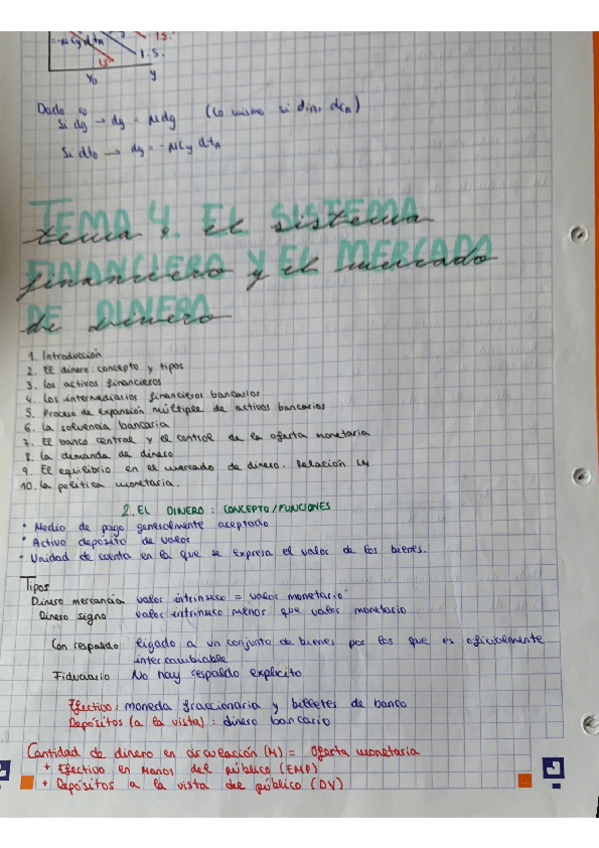 -μCy dtn
1.5.
1.5.
1.5'
Y₀ y
Dado t₀
Si dg → dy = μdg (lo mismo si din, dcn)
Si dt₀ → dy = -μCy dtn
TEMA 4. EL SISTEMA
FINANCIERO Y EL MERCADO
DE DINERO
1. Introducción
2. El dinero: concepto y tipos
3. Los activos financieros
4. Los intermediarios financieros bancarios
5. Proceso de expansión múltiple de activos bancarios
6. La solvencia bancaria
7. El banco central y el control de la oferta monetaria
8. La demanda de dinero
9. El equilibrio en el mercado de dinero. Relación LM
10. La política monetaria.
2. EL DINERO: CONCEPTO/FUNCIONES
• Medio de pago generalmente aceptado
• Activo depósito de valor
• Unidad de cuenta en la que se expresa el valor de los bienes.
Tipos
Dinero mercancía valor intrínseco = valor monetario
Dinero signo valor intrínseco menor que valor monetario
Con respaldo ligado a un conjunto de bienes por los que es oficialmente
intercambiable
Fiduciario No hay respaldo explícito
Efectivo: moneda fraccionaria y billetes de banco
Depósitos (a la vista): dinero bancario
Cantidad de dinero en circulación (M) = oferta monetaria
+ Efectivo en manos del público (EMP)
+ Depósitos a la vista del público (DV)